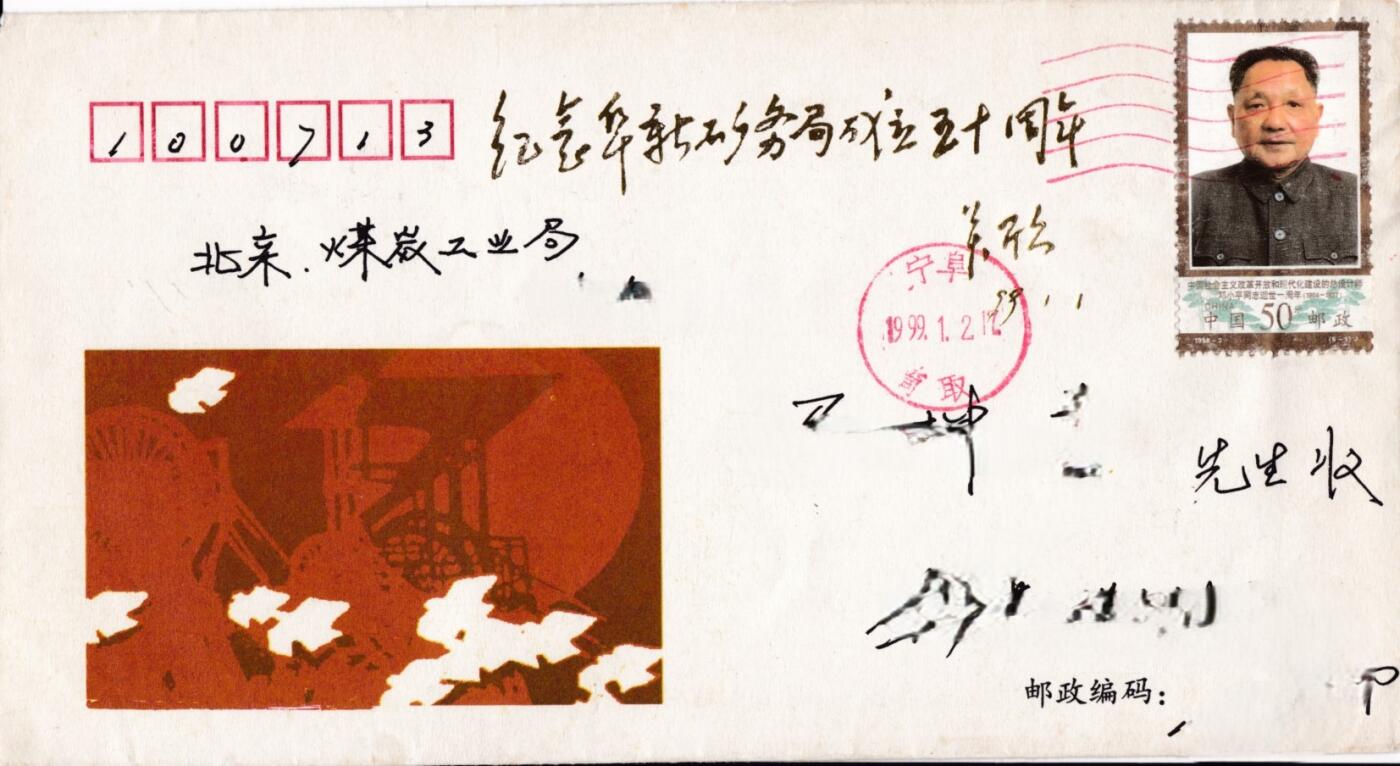 100713
纪念华新矿务局成立五十周年
北京.煤炭工业局
99.1.1
宁阜
1999.1.2
取
中国社会主义改革开放和现代化建设的总设计师
邓小平同志逝世一周年(1904-1997)
CHINA
中国 50分 邮政
1998-3
(6-3)J
先生收
邮政编码: